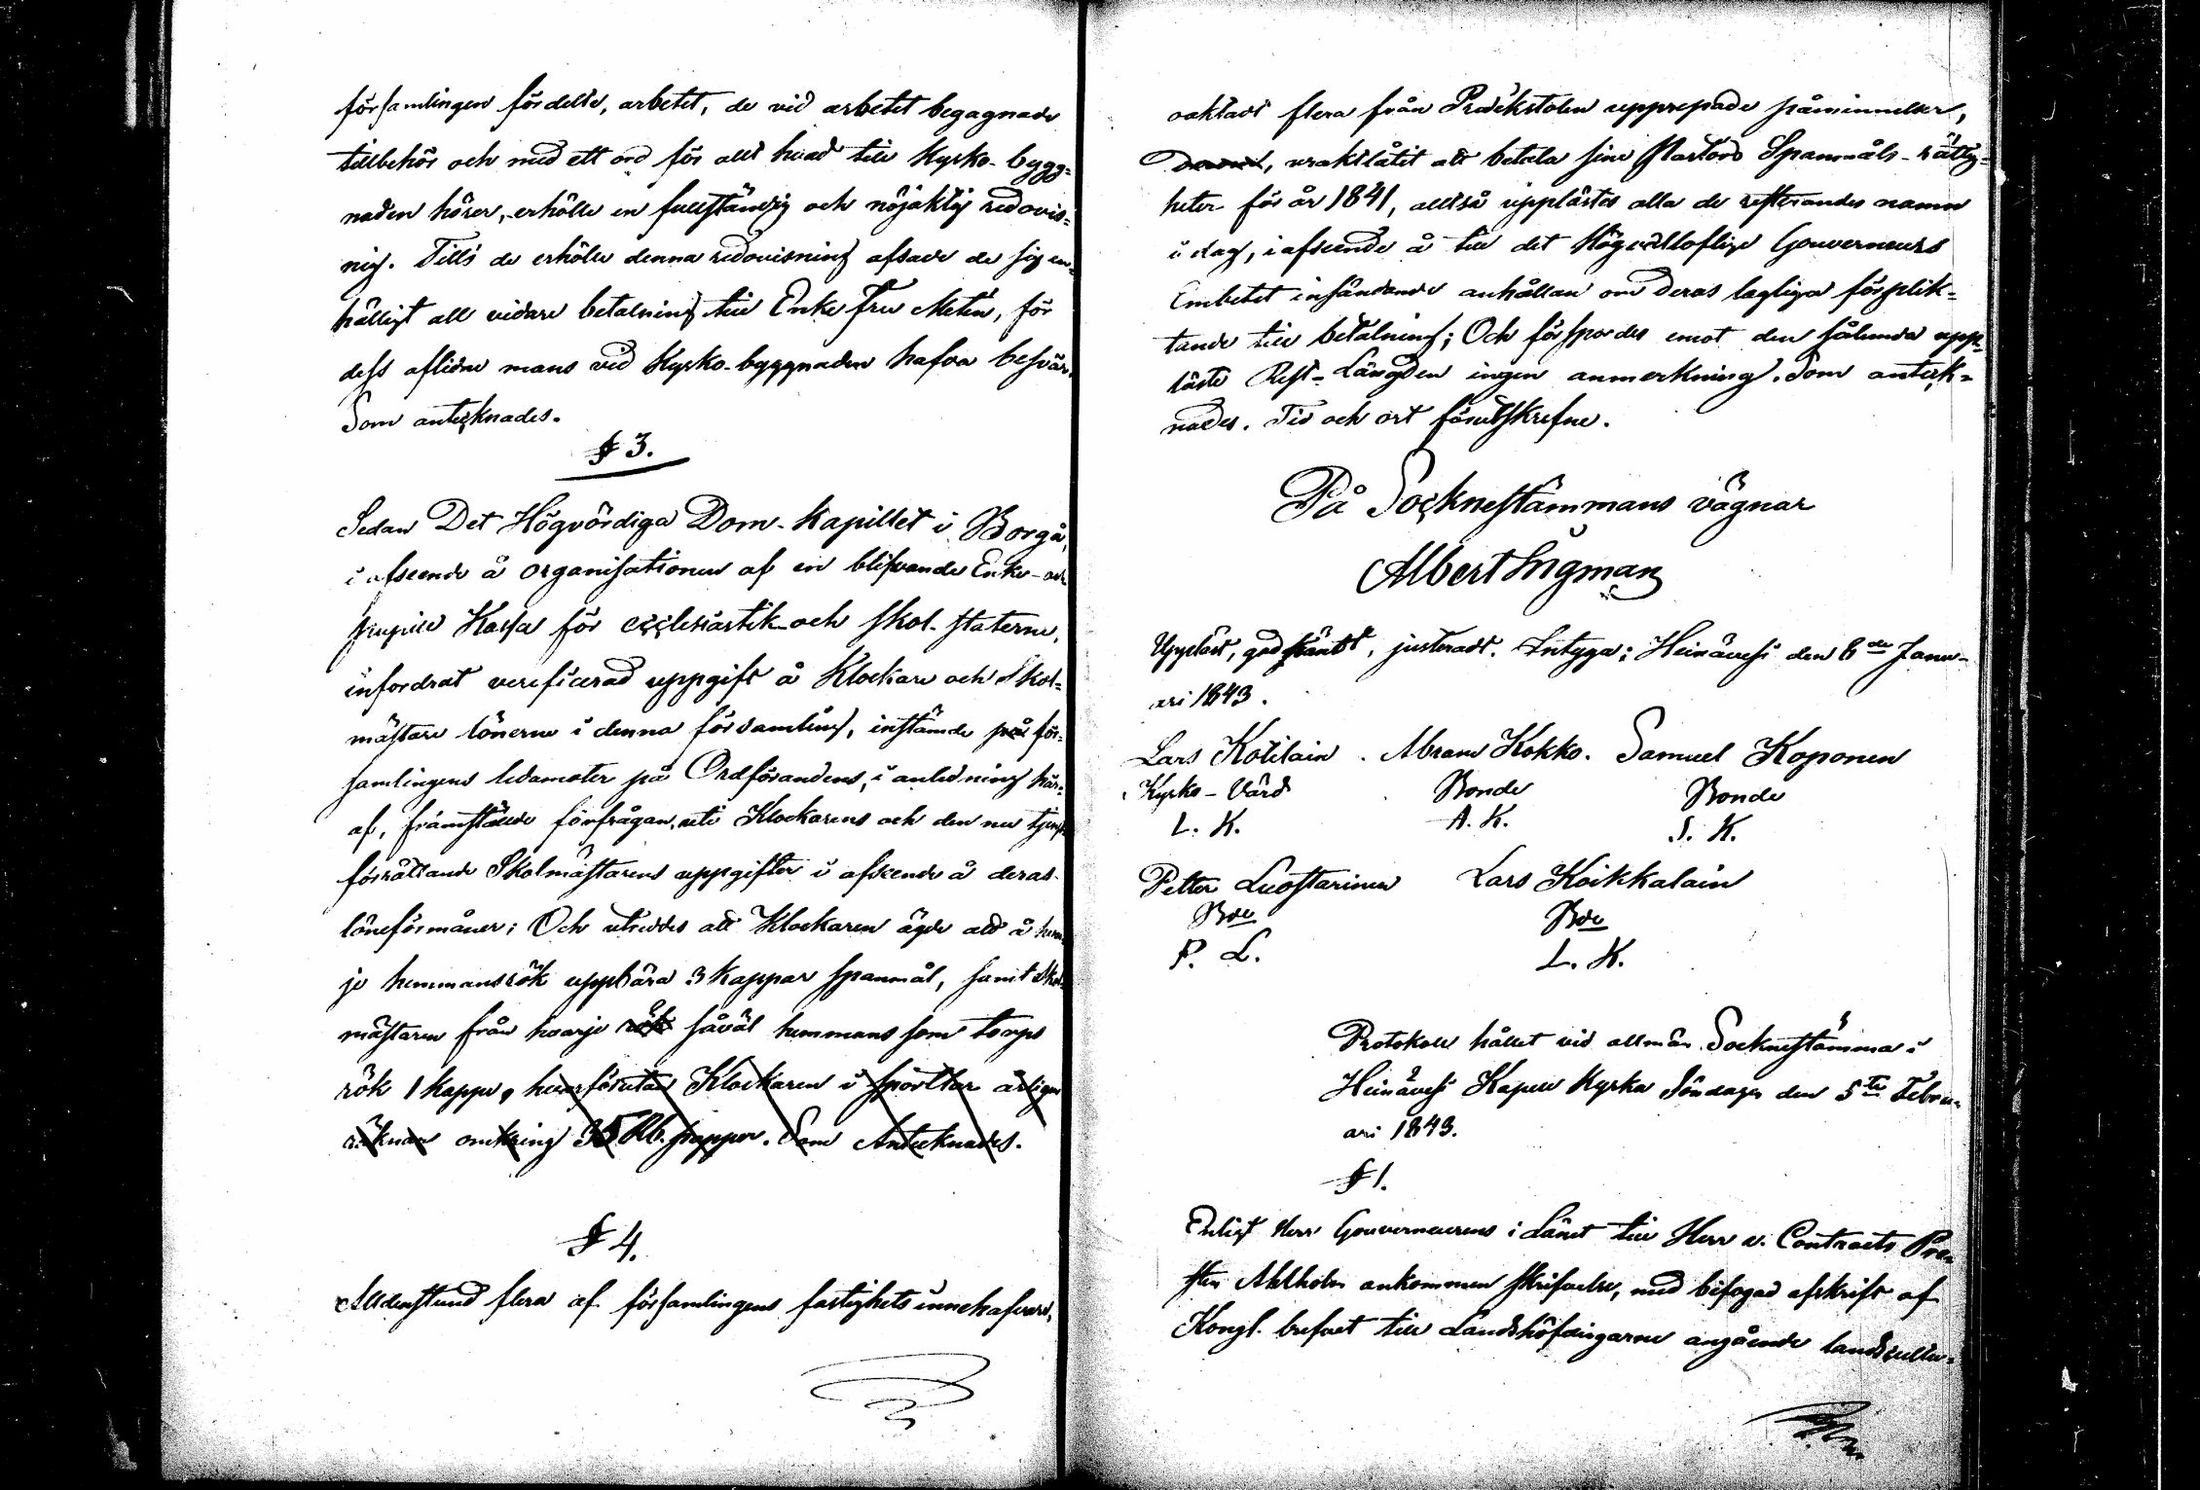 församlingen fördelte, arbetet, de vid arbetet begagnade
tillbehör och med ett ord för allt hvad till Kyrko-bygg=
naden hörer, erhölle en fullständig och nöjaktig redovis=
nig. Tills de erhölle denna redovisning afsade de sig en=
hälligt all vidare betalning till Enke Fru Metén, för
dess aflidne mans vid Kyrko-byggnaden hafva besvär.
Som antecknades.
§ 3.
Sedan Det Högvördiga Dom-Kapitlet i Borgå,
i afseende å organisationen af en blifvande Enke-och
pupill Kassa för ecclesiastik-och skol-staterne,
infordrat verificerad uppgift å Klockare och Skol=
mästare lönerne i denna församling, instämde för=
samlingens ledamoter på Ordförandens, i anledning här=
af, framställde förfrågan, uti Klockarens och den nu tjenst
förrättande Skolmästarens uppgifter i afseende å deras
löneförmåner; Och utreddes att Klockaren ägde att å hvar
je hemmansrök uppbära 3 kappar spanmål, samt Skol
mästaren från hvarje rök såväl hemmans som torps
rök 1 kappe, hvarförutan Klockaren i sportlar årligen
räknar omkring 35 Rb. papper. Som Antecknades.
§ 4.
Alldenstund flera af församlingens fastighets innehafvare,
oaktadt flera från Prädikstolen upprepade påminnelser,
uraktlåtit att betala sine Pastors Spanmåls-rättig=
heter för år 1841, alltså upplästes alla de resterandes namn
i dag, i afseende å till det Högvällofliga Gouverneurs
Embetet insändande anhållan om deras lagliga förplik=
tande till betalning; Och förspordes emot den sålunda upp=
läste Rest-Längden ingen anmerkning. Som anteck=
nades. Tid och ort förutskrefne.
På Sockneständmans vägnar
Albert Ingman
Uppläst, godkändt, justeradt. Intyga: Heinävesi den 6de Janu-
ari 1843.
Lars Kotilain. Abram Kokko. Samuel Koponen
Kyrko-Värd Bonde Bonde
L. K. A. K. S. K.
Petter Luostarinen Lars Koikkalain
Bde Bde
P. L. L. K.
Protokoll hållet vid allmän Socknestämma i
Heinävesi Kapell Kyrka Söndagen den 5te Febru-
ari 1843.
§ 1.
Enligt Herr Gouverneurens i Länet till Herr v. Contracts Pro-
sten Ahlholm ankommen skrifvelse, med bifogad afskrift af
Kongl. brefvet till Landshöfdingarne angående landtcultu=